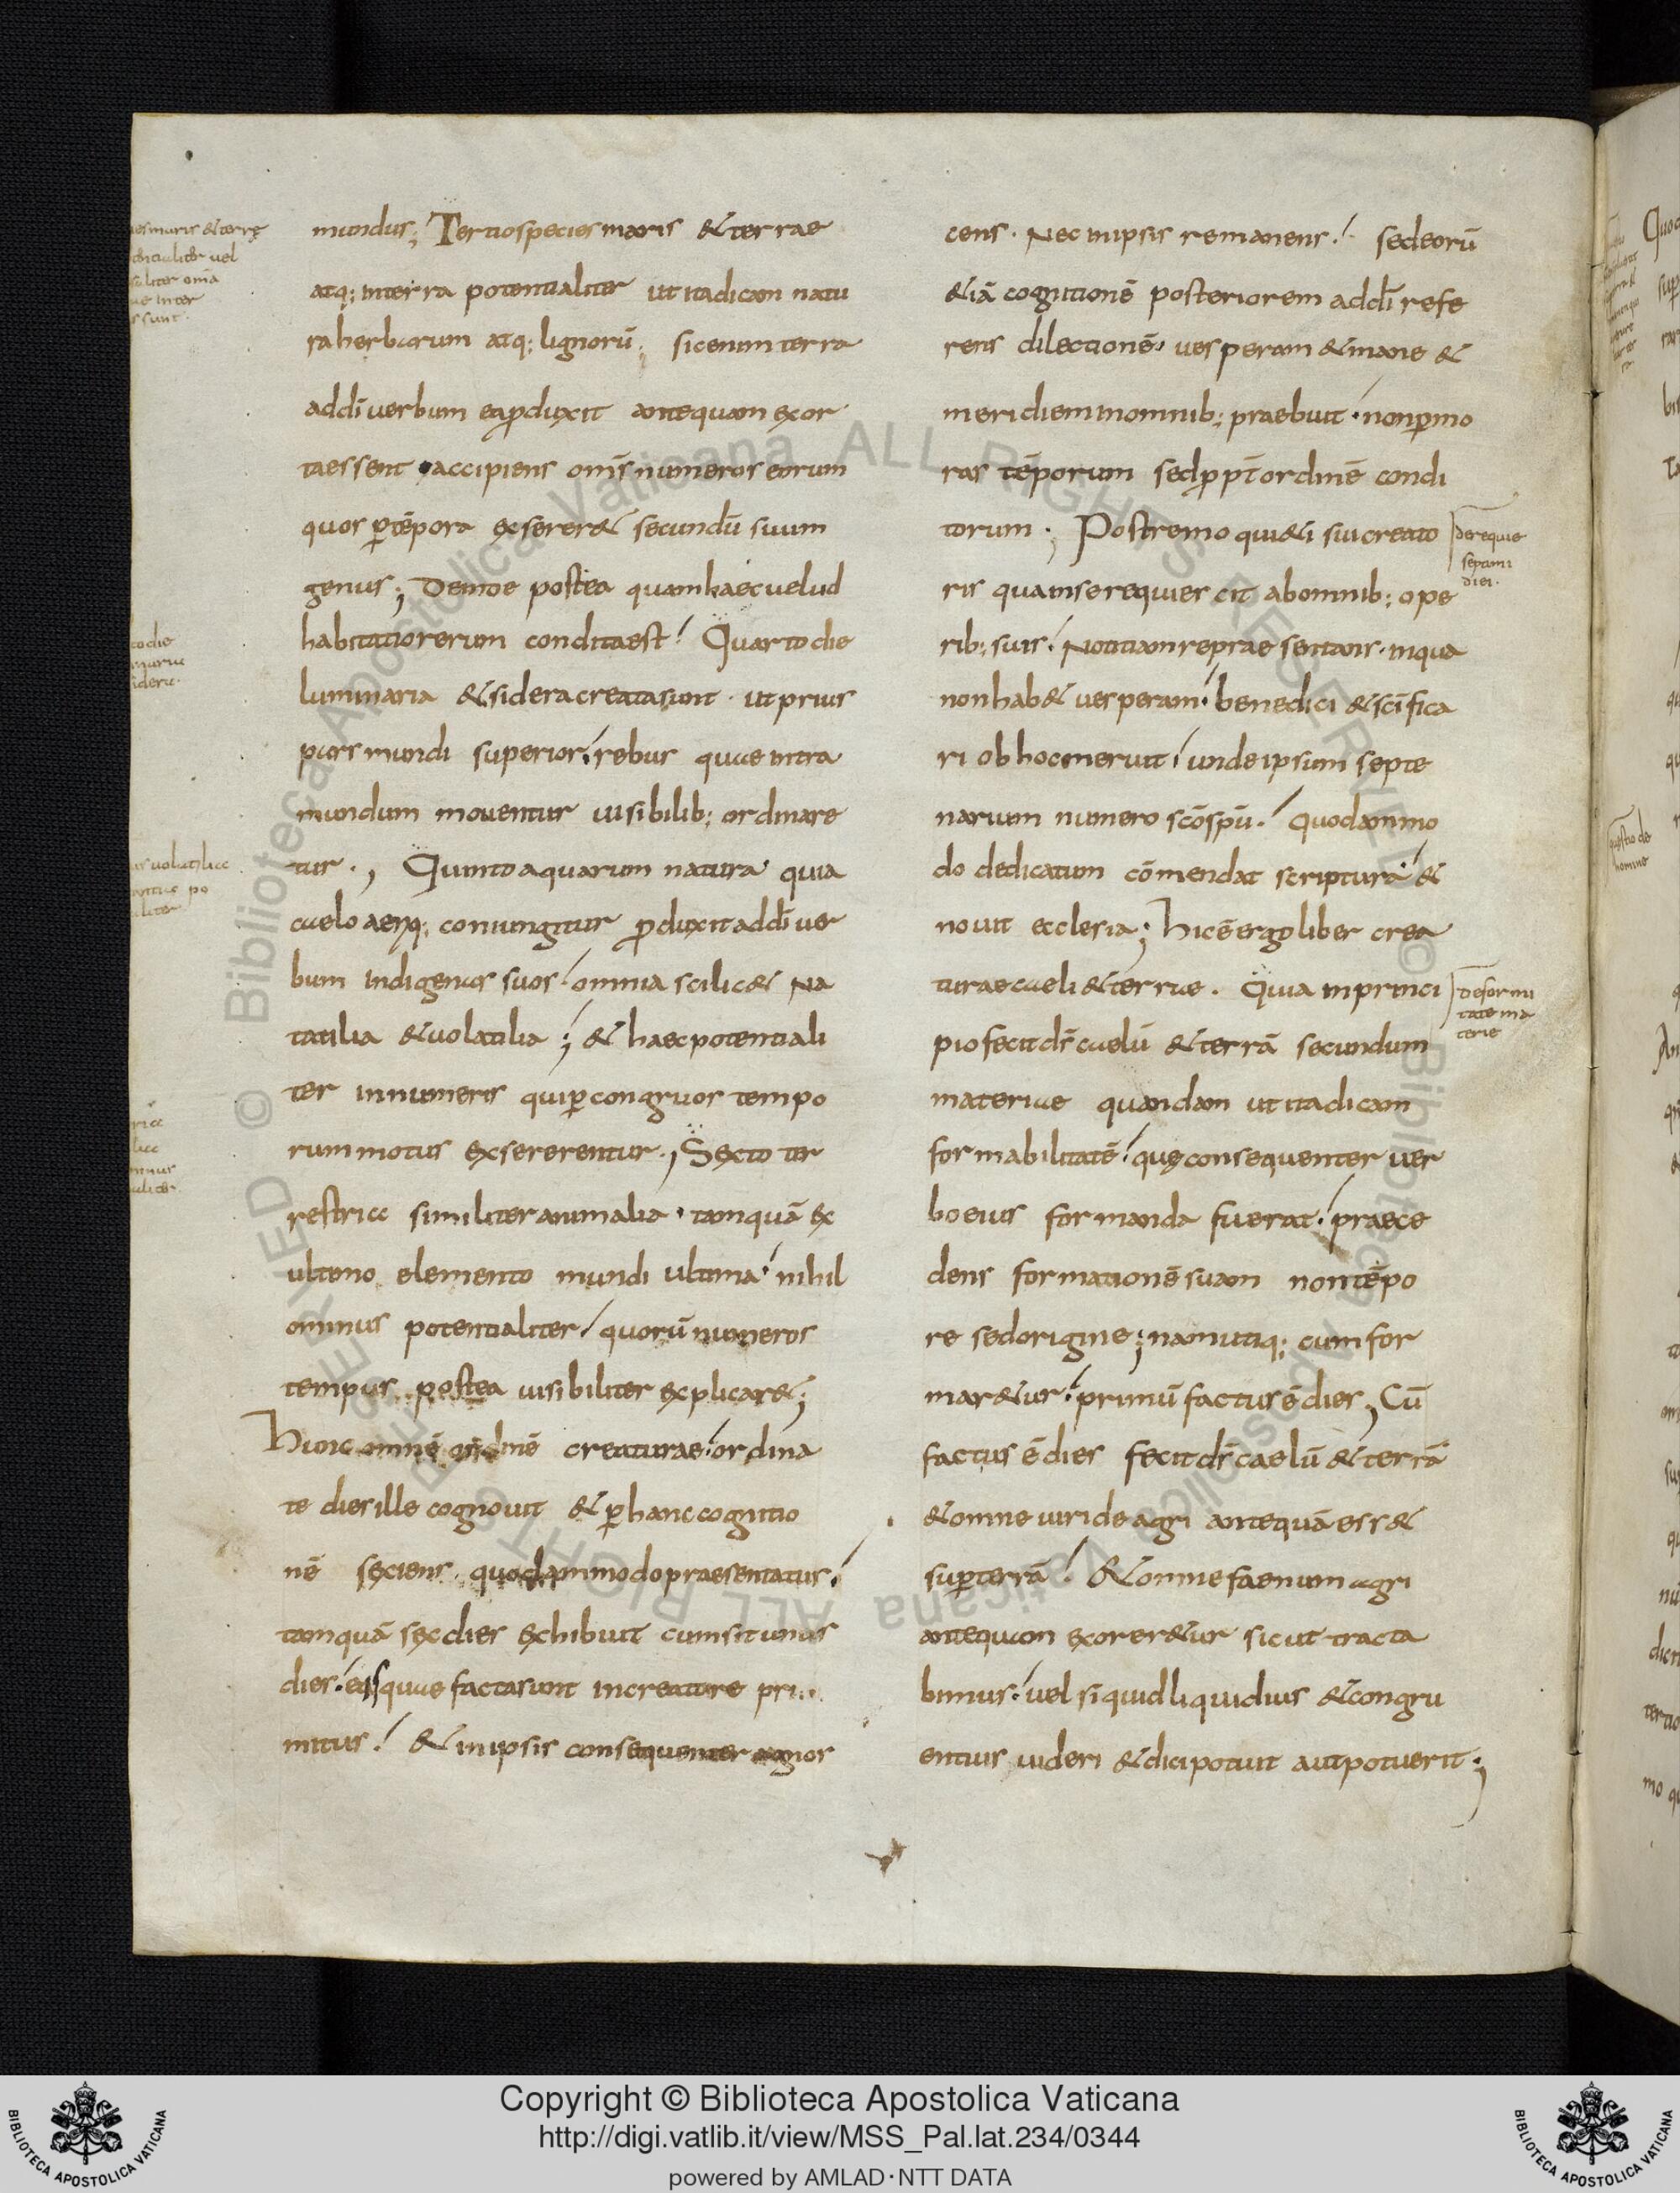 mundus; Tertio species maris & terrae
atq; in terra potentialiter ut ita dicam natu
ra herbarum atq; lignorū; sic enim terra
ad dī uerbum ea ꝓduxit antequam exor
ta essent accipiens om̄s numeros eorum
quos ꝑ tēpora exserer& secundū suum
genus; Deinde postea quam haec uelud
habitatio rerum condita est! Quarto die
luminaria & sidera creata sunt · ut prius
pars mundi superior! rebus quae intra
mundum mouentur uisibilib; ordinare
tur ·, Quinto aquarum natura quia
caelo aeriq; coniungitur ꝓduxit ad dī uer
bum indigenas suos! omnia scilic& Na
tatilia & uolatilia; & haec potentiali
ter in numeris qui ꝑ congruos tempo
rum motus exsererentur·, Sexto ter
restria similiter animalia · tamquā ex
ultimo elemento mundi ultima! nihil
ominus potentialiter! quorū numeros
tempus postea uisibiliter explicar&;
Hunc omnē ordinē creaturae! ordina
te dies ille cognouit & ꝑ hanc cognitio
nē sexiens quodammodo praesentatus!
tamquā sex dies exhibuit cum sit unus
dies! ea quae facta sunt in creatore pri
mitus! & in ipsis consequenter agnos
cens · Nec in ipsis remanens! sed eorū
&iā cognitionē posteriorem ad dī refe
rens dilectionē· uesperam & mane &
meridiem in omnib; praebuit · non ꝑ mo
ras tēporum sed ꝓpt̄ ordinē condi
torum ·; Postremo qui&i sui creato
ris qua in se requiescit ab omnib; ope
rib; suis! Notitiam repraesentans · in qua
non hab& uesperam! benedici & sc̄ifica
ri ob hoc meruit! unde ipsum septe
narum numero sc̄o sp̄ū! quodammo
do dedicatum cōmendat scriptura! &
nouit ecclesia; Hic ē ergo liber crea
turae caeli & terrae. Quia in princi
pio fecit dS̄ caelū & terrā secundum
materiae quandam ut ita dicam
formabilitatē! quę consequenter uer
bo eius formanda fuerat! praece
dens formationē suam non tēpo
re sed origine; nam utiq; cum for
mar&ur! primū factus ē dies, Cū
factus ē dies fecit ds̄ caelū & terrā
& omne uiride agri antequā ess&
suꝑ terrā! & omne faenum agri
antequam exorer&ur sicut tracta
bimus! uel si quid liquidius & congru
entius uideri & dici potuit aut potuerit;
de requie
septimi
diei.
De formi
tate ma
terie
Copyright © Biblioteca Apostolica Vaticana
http://digi.vatlib.it/view/MSS_Pal.lat.234/0344
powered by AMLAD·NTT DATA
BIBLIOTECA APOSTOLICA VATICANA
BIBLIOTECA APOSTOLICA VATICANA